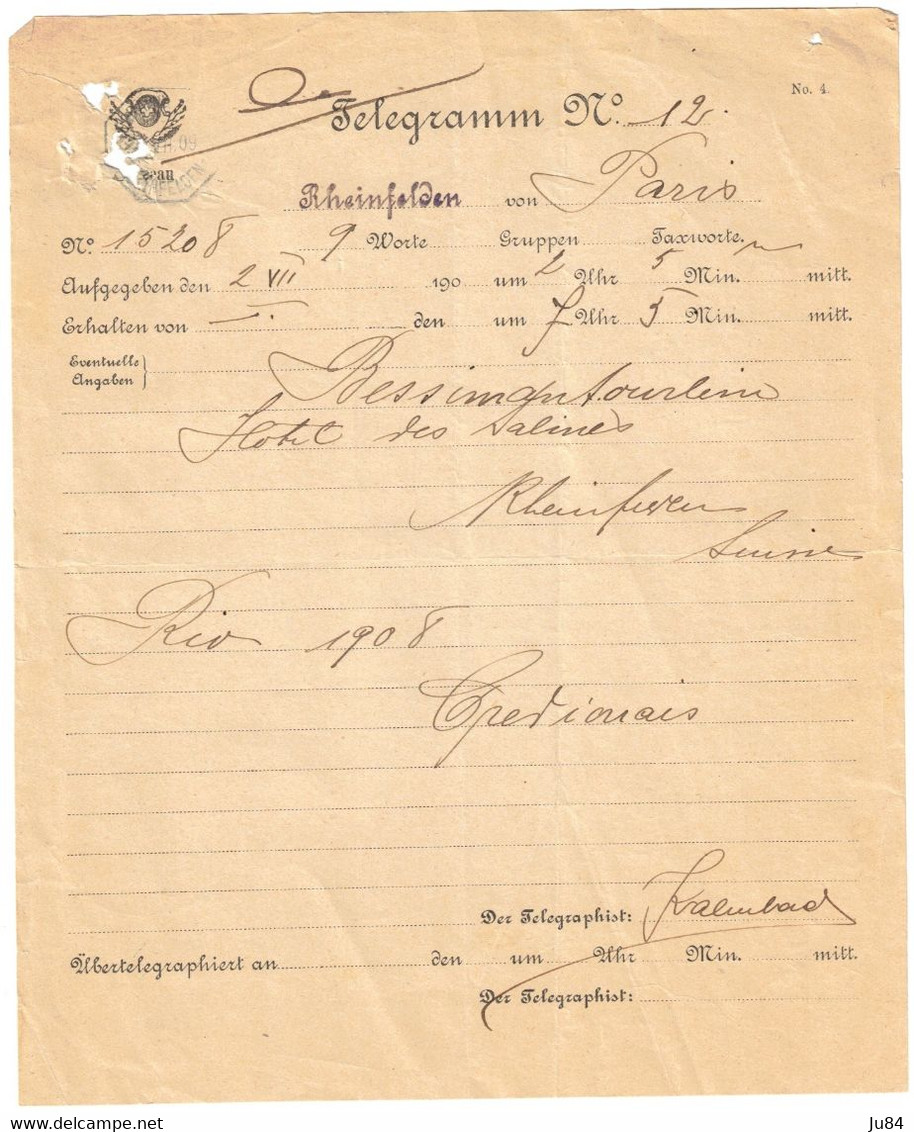 No. 4.
Telegramm No. 12.
eau
Rheinfelden von Paris
No. 15208 9 Worte Gruppen Taxworte.
Aufgegeben den 2 VII 190 um 2 Uhr 5 Min. mitt.
Erhalten von den um 7 Uhr 5 Min. mitt.
Eventuelle
Angaben
Bessimgntourlein
Hotel des Salines
Rheinfelden
Suisse
Rio 1908
Credionais
Der Telegraphist: Kalmbach
Übertelegraphiert an den um Uhr Min. mitt.
Der Telegraphist:
Ju84